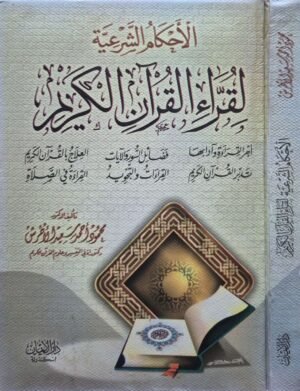 الأحكام الشرعية
لقراء القرآن الكريم
أجر القراءة وآدابها فضائل السور والآيات العلاج بالقرآن الكريم
تدبر القرآن الكريم القراءات والتجويد القراءة في الصلاة
تأليف الدكتور
محمود أحمد سعيد الأطرش
دكتوراه في التفسير وعلوم القرآن الكريم
دار الإيمان
اسكندرية
محمود أحمد سعيد الأطرش
الأحكام الشرعية لقراء القرآن الكريم
دار الإيمان